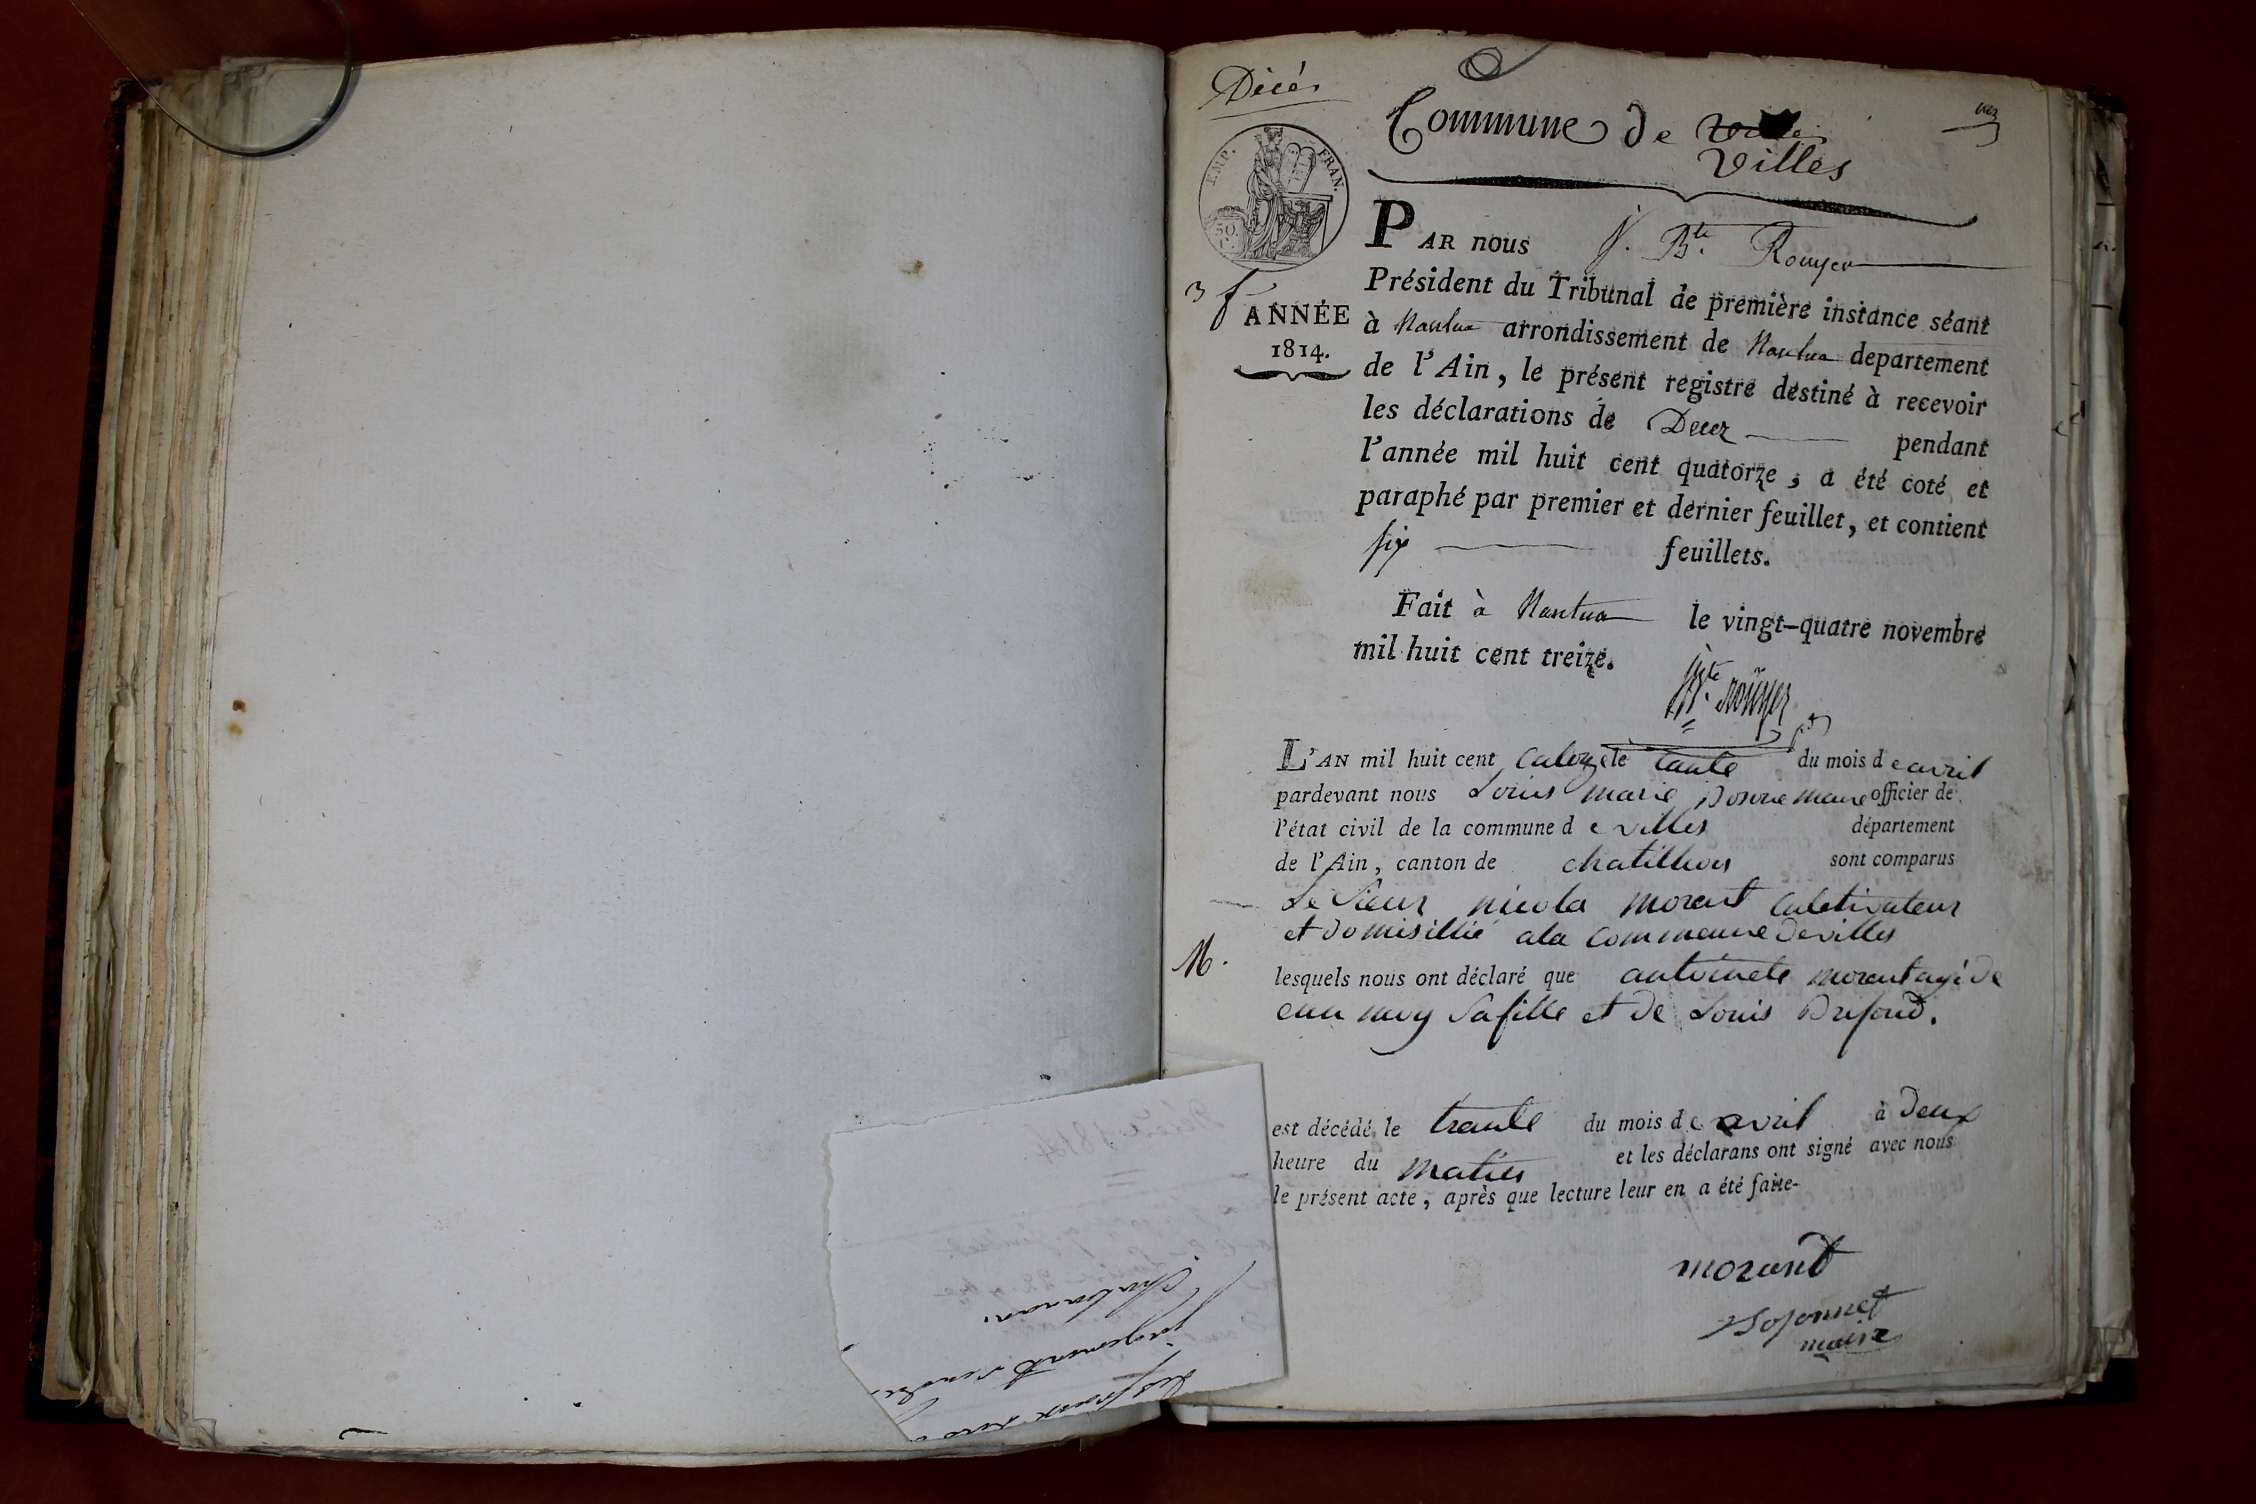 Décés
Commune de
Villes
EMP. FRAN.
50. C.
3 f
ANNÉE
1814.
PAR nous J. Bte. Rouyer
Président du Tribunal de première instance séant
à Nantua arrondissement de Nantua departement
de l'Ain, le présent registre destiné à recevoir
les déclarations de Decez pendant
l'année mil huit cent quatorze, a été coté et
paraphé par premier et dernier feuillet, et contient
six feuillets.
Fait à Nantua le vingt-quatre novembre
mil huit cent treize.
J. Bte. Rouyer
L'AN mil huit cent catorze le trante du mois de avril
pardevant nous Louis marie officier de
l'état civil de la commune de villes département
de l'Ain, canton de chatillion sont comparus
Le Sieur nicola morant cultivateur
et domisillié a la commeune de villes
M.
lesquels nous ont déclaré que antoinete morant agé de
sa fille et de Louis
est décédé le trante du mois de avril à deux
heure du matin et les déclarans ont signé avec nous
le présent acte, après que lecture leur en a été faite.
morand
maire
1814
jugement